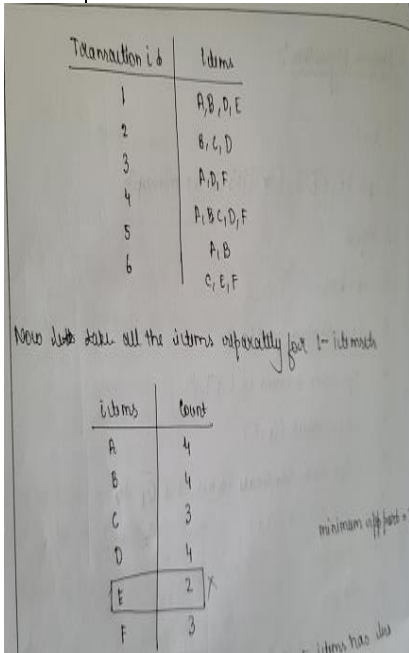 Transaction id Items
1 A,B,D,E
2 B,C,D
3 A,D,F
4 A,B,C,D,F
5 A,B
6 C,E,F
Now lets take all the items separately for 1- itemset
items Count
A 4
B 4
C 3
D 4
E 2 X
F 3
minimum support =
items has